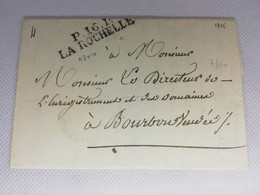 P. 16. P.
LA ROCHELLE
1826
à Monsieur
Monsieur Le Directeur de
L'Enrigistrement et des Domaines
à Bourbon Vendée /.